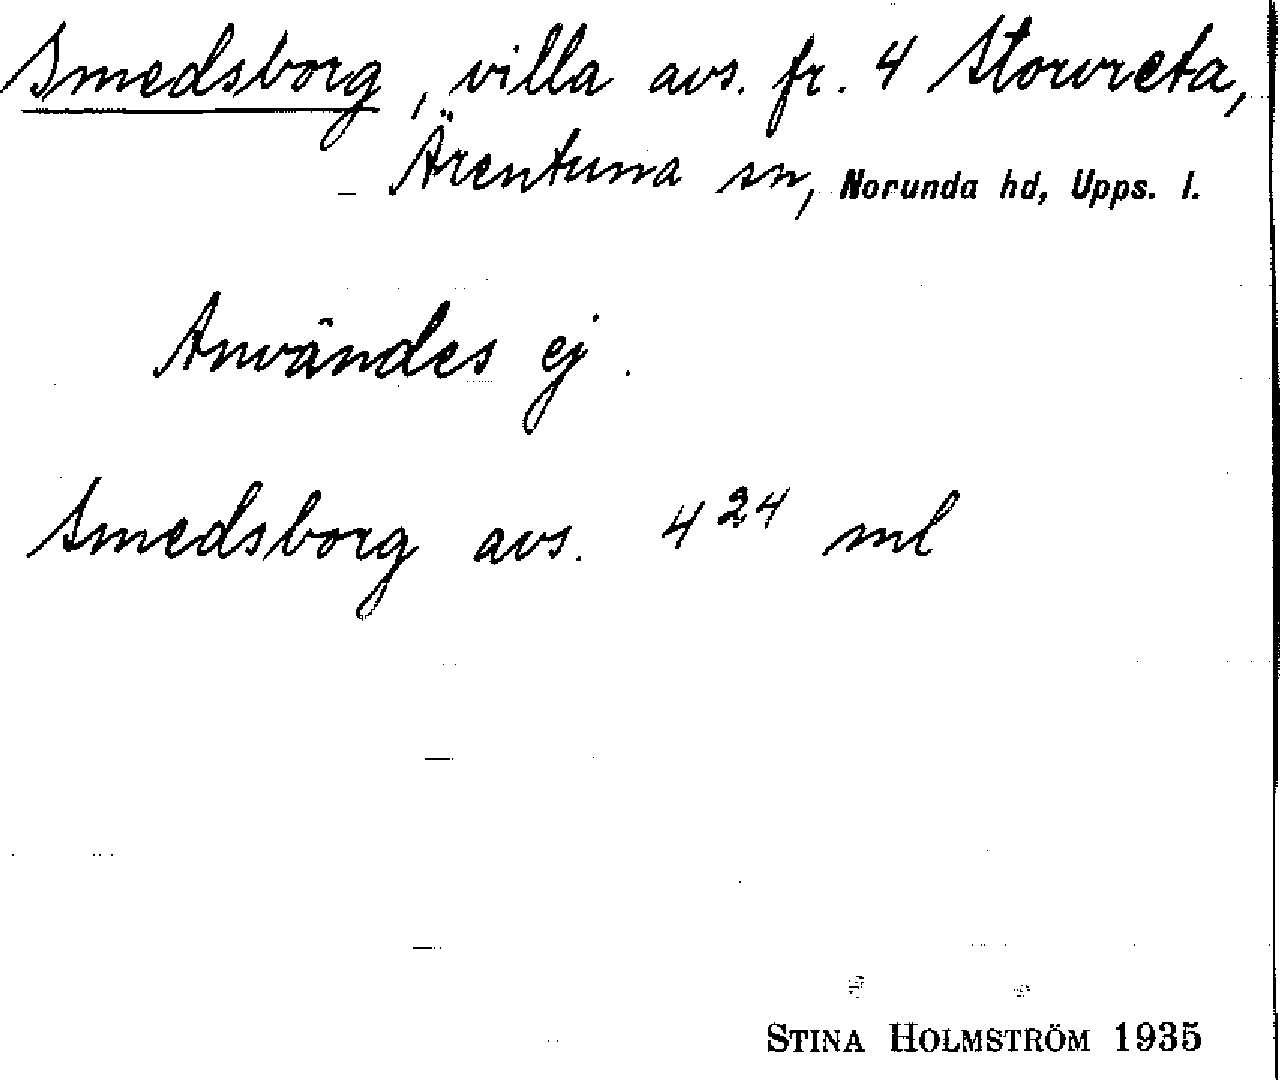 Smedsborg, villa avs. fr. 4 Storvreta,
Ärentuna sn, Norunda hd, Upps. l.
Användes ej.
Smedsborg avs. 4²⁴ ml
STINA HOLMSTRÖM 1935